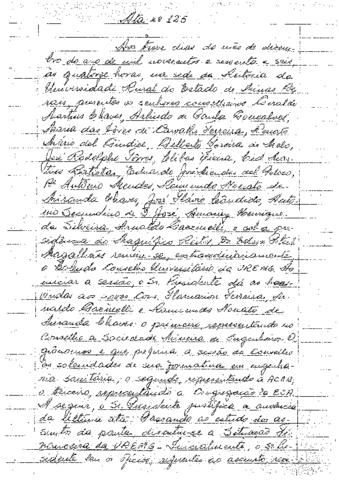 Ata nº 125
Aos nove dias do mês de dezem-
bro do ano de mil novecentos e sessenta e seis,
às quatorze horas, na sede da Reitoria da
Universidade Rural do Estado de Minas Ge-
rais, presentes os senhores conselheiros Geraldo
Martins Chaves, Arlindo de Paula Gonçalves,
Maria das Dores de Carvalho Ferreira, Renato
Mário del Giudice, Gilberto de Melo,
José Rodolpho Torres, Clibas Vieira, Cid Mar-
tins Batista, Eduardo José Mendes del Peloso,
Pe. Antônio Mendes, Raimundo Nonato de
Miranda Chaves, José Flávio Cândido, Antô-
nio Secundino de S. José, Amaury Henrique
da Silveira, Arnaldo e sob a pre-
sidência do Magnífico Reitor Dr. Edson Potsch
Magalhães reuniu-se, extraordinariamente
o Conselho Universitário da UREMG. Ao
iniciar a sessão, o Sr. Presidente dá as boas
vindas aos novos Cons. Ferreira, Ar-
naldo e Raimundo Nonato de
Miranda Chaves: o primeiro representando no
Conselho a Sociedade Mineira de Engenheiros A-
grônomos e que a sessão do Conselho
os de sua formatura em engenha-
ria sanitária; o segundo, representando a
o terceiro, representando a Congregação da ESA.
A seguir, o Sr. Presidente justifica a ausência
da última ata. Passando ao estudo dos as-
suntos da pauta, discutiu-se a Situação Fi-
nanceira da UREMG. Inicialmente, o Sr. Pre-
sidente leu os ofícios, referentes ao assunto,